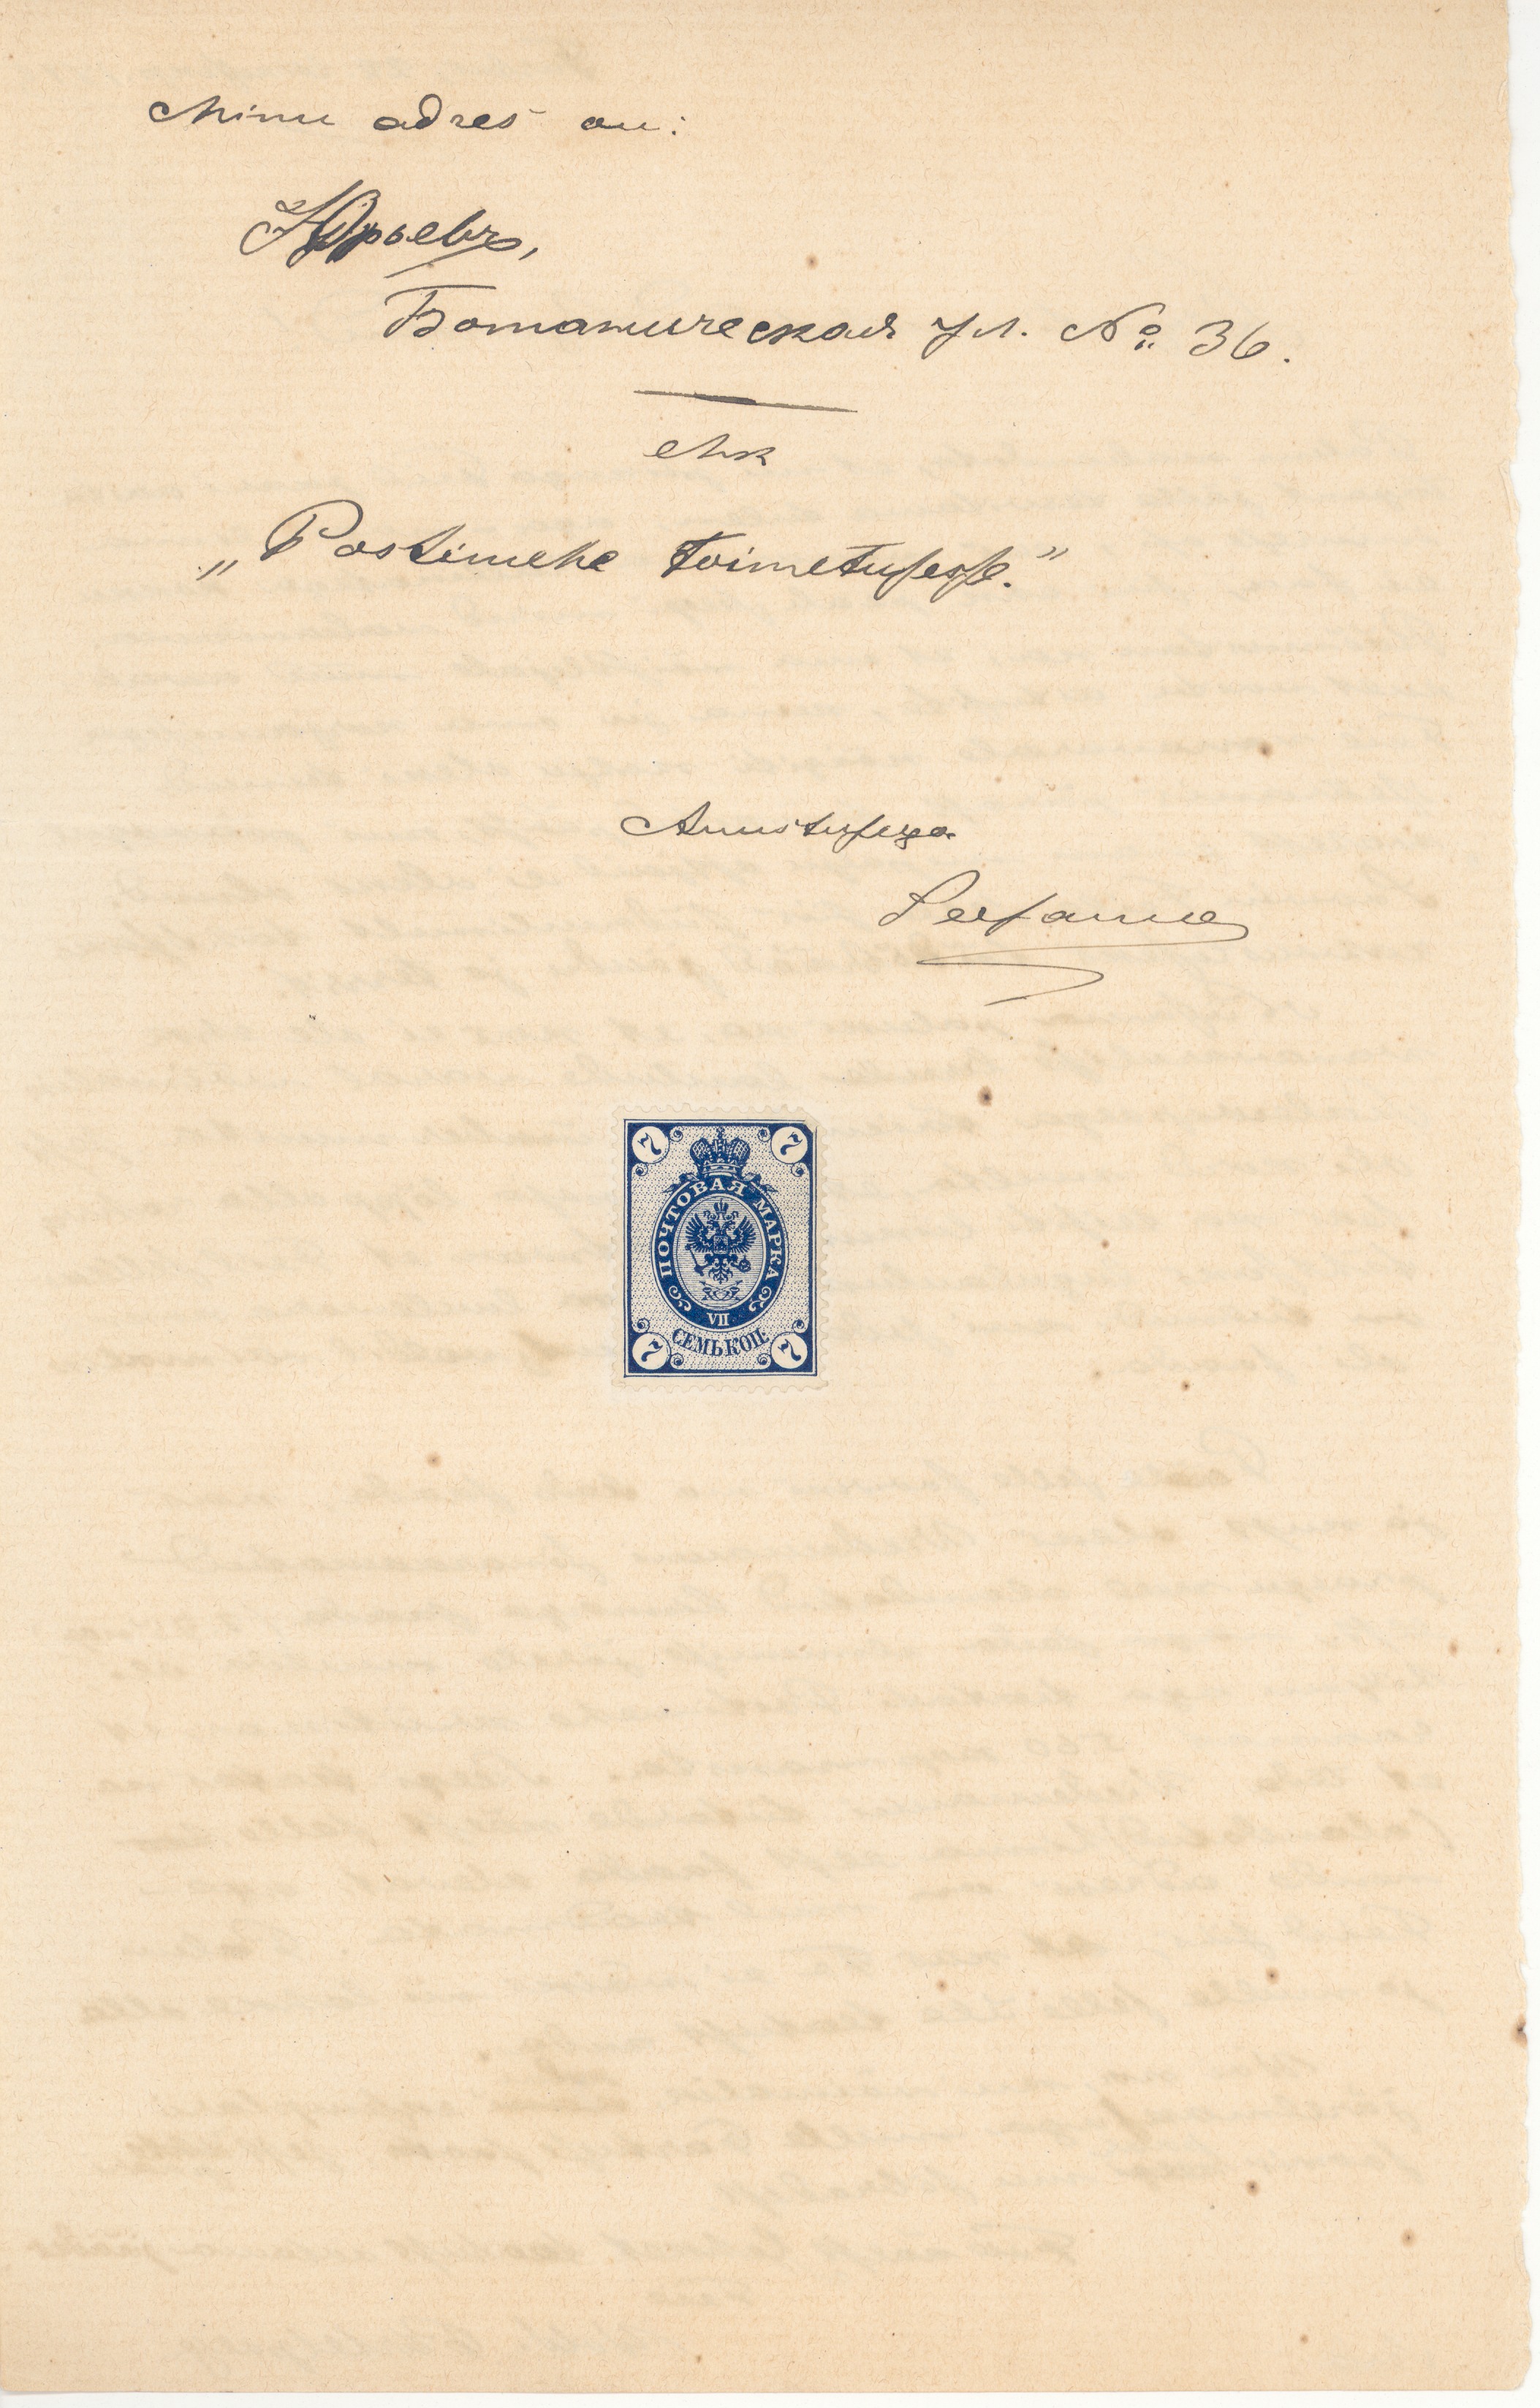 Minu adres on:
Юрьевъ,
Ботаническая ул. № 36.
ehk
„Postimehe toimetusesse.”
Austusega
7 7
ПОЧТОВАЯ МАРКА
VII
СЕМЬ КОП.
7 7